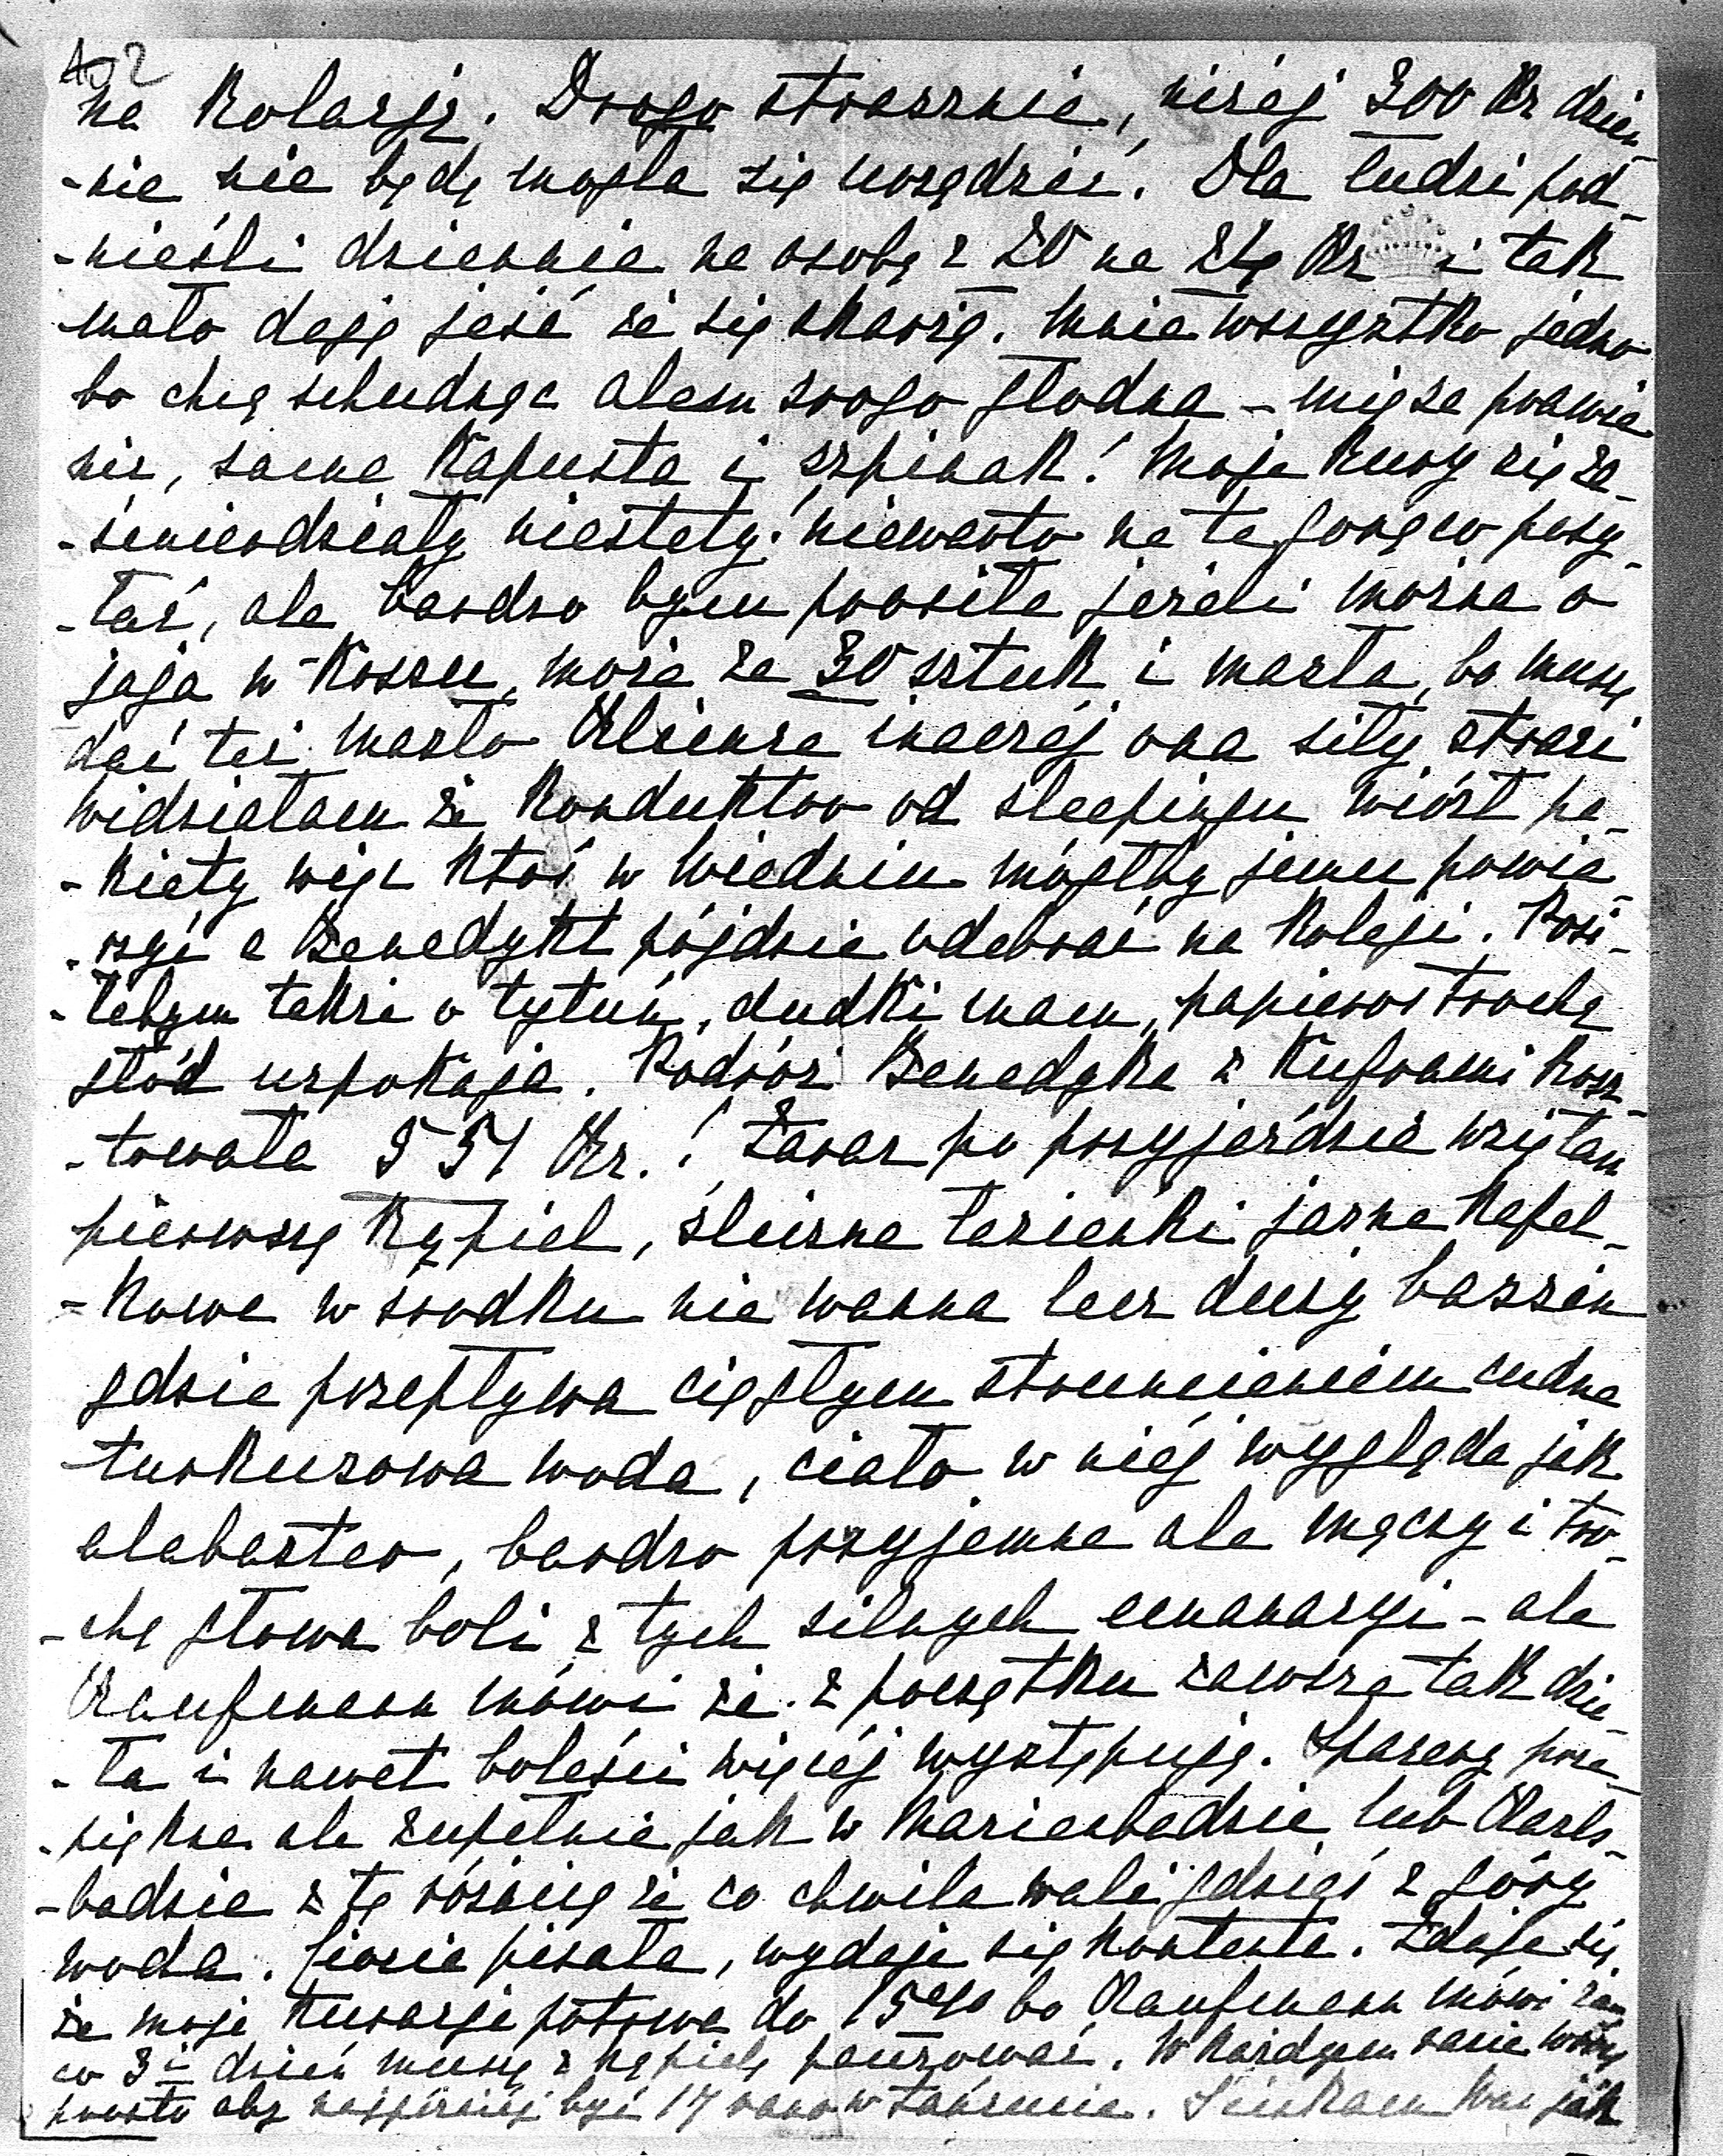 2
na kolację. Drogo strasznie, niżej 300 Kr dzien-
-nie nie będę mogła się urządzić. Dla ludzi pod-
-nieśli dziennie na osobę z 20 na Kr i tak
mało dają jeść że się skarżą. Mnie wszystko jedno
bo chcę schudnąć alem srogo głodna - mięsa prawie
nic, same kapusta i szpinak! Moje kury się za-
-śmierdziały niestety! niewarto na te gorąco posy-
-łać, ale bardzo bym prosiła jeżeli można o
jaja w koszu, może ze 30 sztuk i masła, bo muszę
dać też masło Klimze inaczej ona siły straci
widziałam że konduktor od sleepingu wiózł pa-
-kiety więc ktoś w Wiedniu mógłby jemu powie-
-rzyć a Benedykt pójdzie odebrać na kolej. Prosi-
-łabym także o tytuń, dudki mam, papieros trochę
głód uspokaja. Podróż Benedyka z kuframi kosz-
-towała 551 Kr.! Zaraz po przyjeździe wzięłam
pierwszą kąpiel, śliczne łazienki jasne kafel-
-kowe w środku nie wanna lecz duży bassin
gdzie przepływa ciągłym strumieniem cudna
turkusowa woda, ciało w niej wygląda jak
alabaster, bardzo przyjemne ale męczy i tro-
-chę głowa boli z tych silnych emanacyi - ale
Kaufmann mówi że z początku zawsze tak dzia-
-ła i nawet boleści więcej występują. Spacery prze-
-piękne ale zupełnie jak w Marienbadzie lub Karls-
-badzie z tą różnicą że co chwila wali gdzieś z góry
woda. pisała, wydaje się kontenta. Zdaje się
że moja kuracja potrwa do 15go bo Kaufmann mówi że
co 3i dzień muszę z kąpielą pauzować. W każdym razie
prosto aby najpóźniej być 17 rano w Łańcucie. Ściskam Was jak